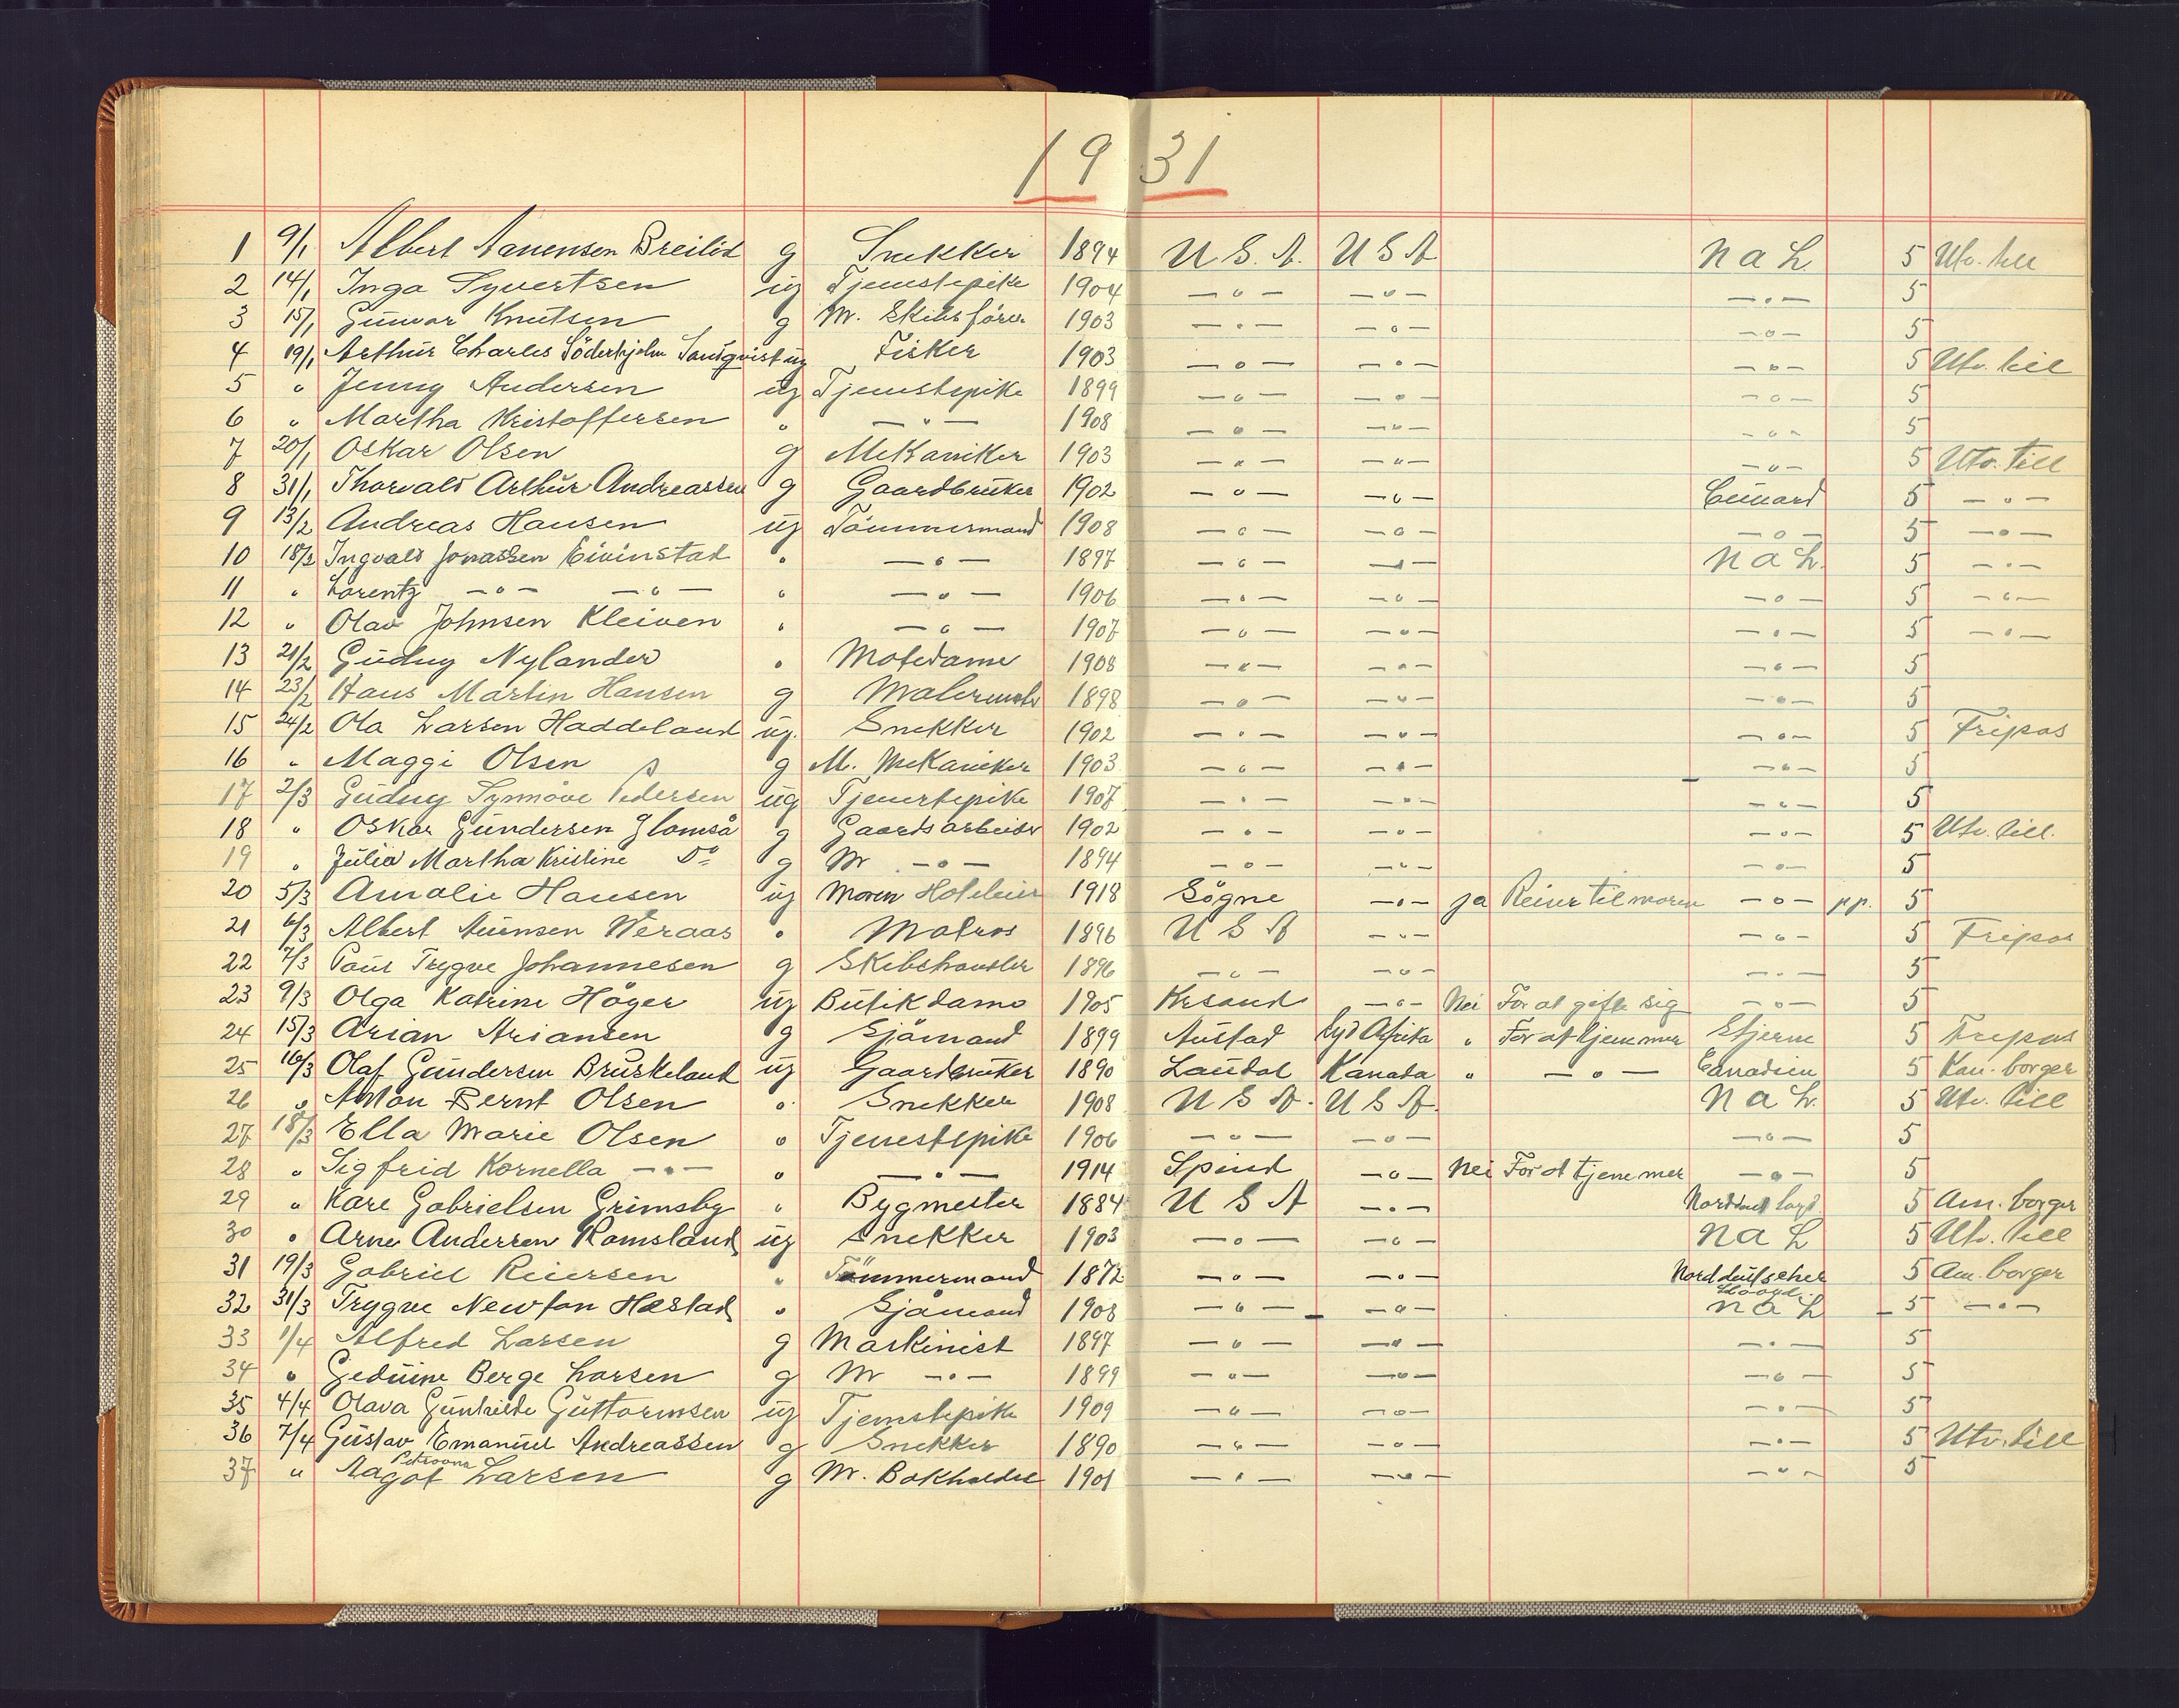 1931
1 9/1 Albert Aanensen Breilid g Snekker 1894 U S. A. U S A N a L 5 Utv. till
2 14/1 Inga Syvertsen ug Tjenestepike 1904 — " — — " — — " — 5
3 15/1 Gunvor Knutsen g M. Skibsfører 1903 — " — — " — — " — 5
4 19/1 Arthur Charles Söderhjelm Sandqvist ug Fisker 1903 — " — — " — — " — 5 Utv. till
5 " Jenny Andersen ug Tjenstepike 1899 — " — — " — — " — 5
6 " Martha Kristoffersen " — " — 1908 — " — — " — — " — 5
7 20/1 Oskar Olsen g Mekaniker 1903 — " — — " — — " — 5 Utv. till
8 31/1 Thorvald Arthur Andreassen g Gaardbruker 1902 — " — — " — Cunard 5 — " —
9 13/2 Andreas Hansen ug Tömmermand 1908 — " — — " — — " — 5 — " —
10 18/2 Ingvald Jonassen Eivinstad " — " — 1897 — " — — " — N a L. 5 — " —
11 " Lorentz — " — — " — " — " — 1906 — " — — " — — " — 5 — " —
12 " Olav Johnsen Kleiven " — " — 1907 — " — — " — — " — 5 — " —
13 21/2 Gudny Nylander " Motedame 1908 — " — — " — — " — 5
14 23/2 Hans Martin Hansen g Malermester 1898 — " — — " — — " — 5
15 24/2 Ola Larsen Haddeland ug. Snekker 1902 — " — — " — — " — 5 Fripas
16 " Maggi Olsen g M. Mekaniker 1903 — " — — " — — " — 5
17 2/3 Gudny Synnøve Pedersen ug Tjenestepike 1907 — " — — " — — " — 5
18 " Oskar Gundersen Glomså g Gaardsarbeider 1902 — " — — " — — " — 5 Utv. till.
19 " Julia Martha Kristine Do g M — " — 1894 — " — — " — — " — 5
20 5/3 Amalie Hansen ug Moren Hoteleier 1918 Søgne — " — ja Reiser til moren — " — pp. 5
21 6/3 Albert Aunsen Weraas " Matros 1896 U S A — " — — " — 5 Fripas
22 7/3 Paul Trygve Johannesen g Skibshandler 1896 — " — — " — — " — 5
23 9/3 Olga Katrine Höyer ug Butikdame 1905 Krsand — " — Nei For at gifte sig — " — 5
24 15/3 Arian Ariansen g Sjömand 1899 Austad Syd Afrika " For at tjene mer Stjerne 5 Fripas
25 16/3 Olaf Gundersen Bruskeland ug Gaardbruker 1890 Laudal Kanada " — " — Canadien 5 Kan. borger
26 " Anton Bernt Olsen " Snekker 1908 U S A. U S A. N a L. 5 Utv. till
27 18/3 Ella Marie Olsen " Tjenestepike 1906 — " — — " — — " — 5
28 " Sigfrid Kornella — " — " — " — 1914 Spind — " — Nei For at tjene mer — " — 5
29 " Kare Gabrielsen Grimsby " Bygmester 1884 U S A — " — 5 Am. borger
30 " Arne Andersen Romsland ug Snekker 1903 — " — — " — N a L 5 Utv. till
31 19/3 Gabriel Reiersen " Tömmermand 1872 — " — — " — Norddeutscher Lloyd 5 Am. borger
32 31/3 Trygve Newton Hæstad " Sjömand 1908 — " — — " — N a L 5 — " —
33 1/4 Alfred Larsen g Maskinist 1897 — " — — " — — " — 5
34 " Berge Larsen g M — " — 1899 — " — — " — — " — 5
35 4/4 Olava Gunhilde Guttormsen ug Tjenestepike 1909 — " — — " — — " — 5
36 7/4 Gustav Emanuel Andreassen g Snekker 1890 — " — — " — — " — 5 Utv. till
37 " Aagot Petrovna Larsen g M. Bokholder 1901 — " — — " — — " — 5